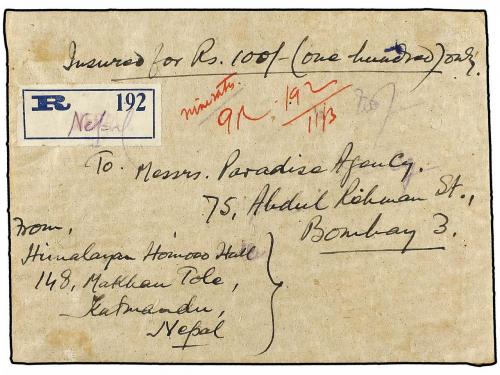 Insured for Rs. 100/- (one hundred) only.
R 192
Nepal
192
11/3
To. Messrs. Paradise Agency.
75, Abdul Rehman St.,
Bombay 3.
From,
Himalayan Homoeo Hall
148, Makhan Tole,
Katmandu,
Nepal